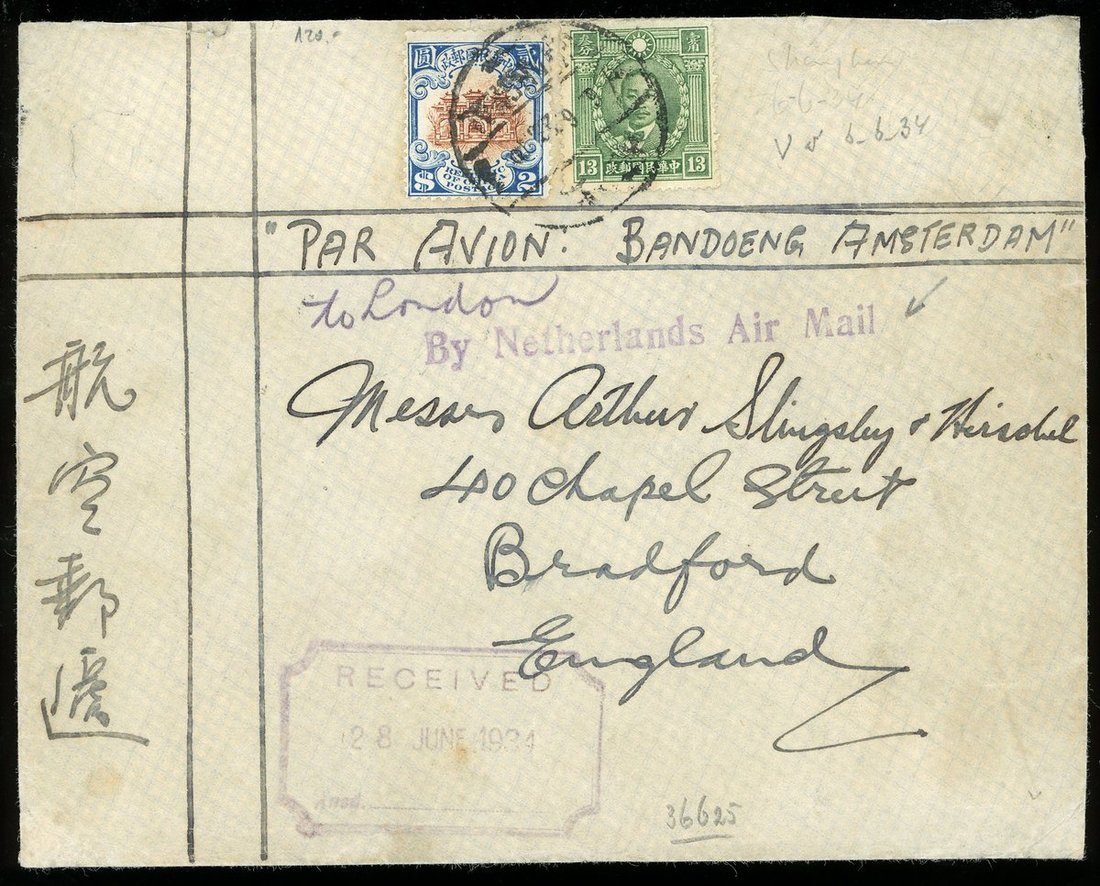 120.-
圓 政郵國民華中 貳
$ REPUBLIC OF CHINA POSTAGE 2
分 甯
13 政郵國民華中 13
Shanghai
6-34
V 6-6-34
"PAR AVION. BANDOENG AMSTERDAM"
to London
By Netherlands Air Mail
Messrs Arthur Slingsby & Herschel
40 Chapel Street
Bradford
England
航空郵遞
RECEIVED
28 JUNE 1934
Ansd.
36625